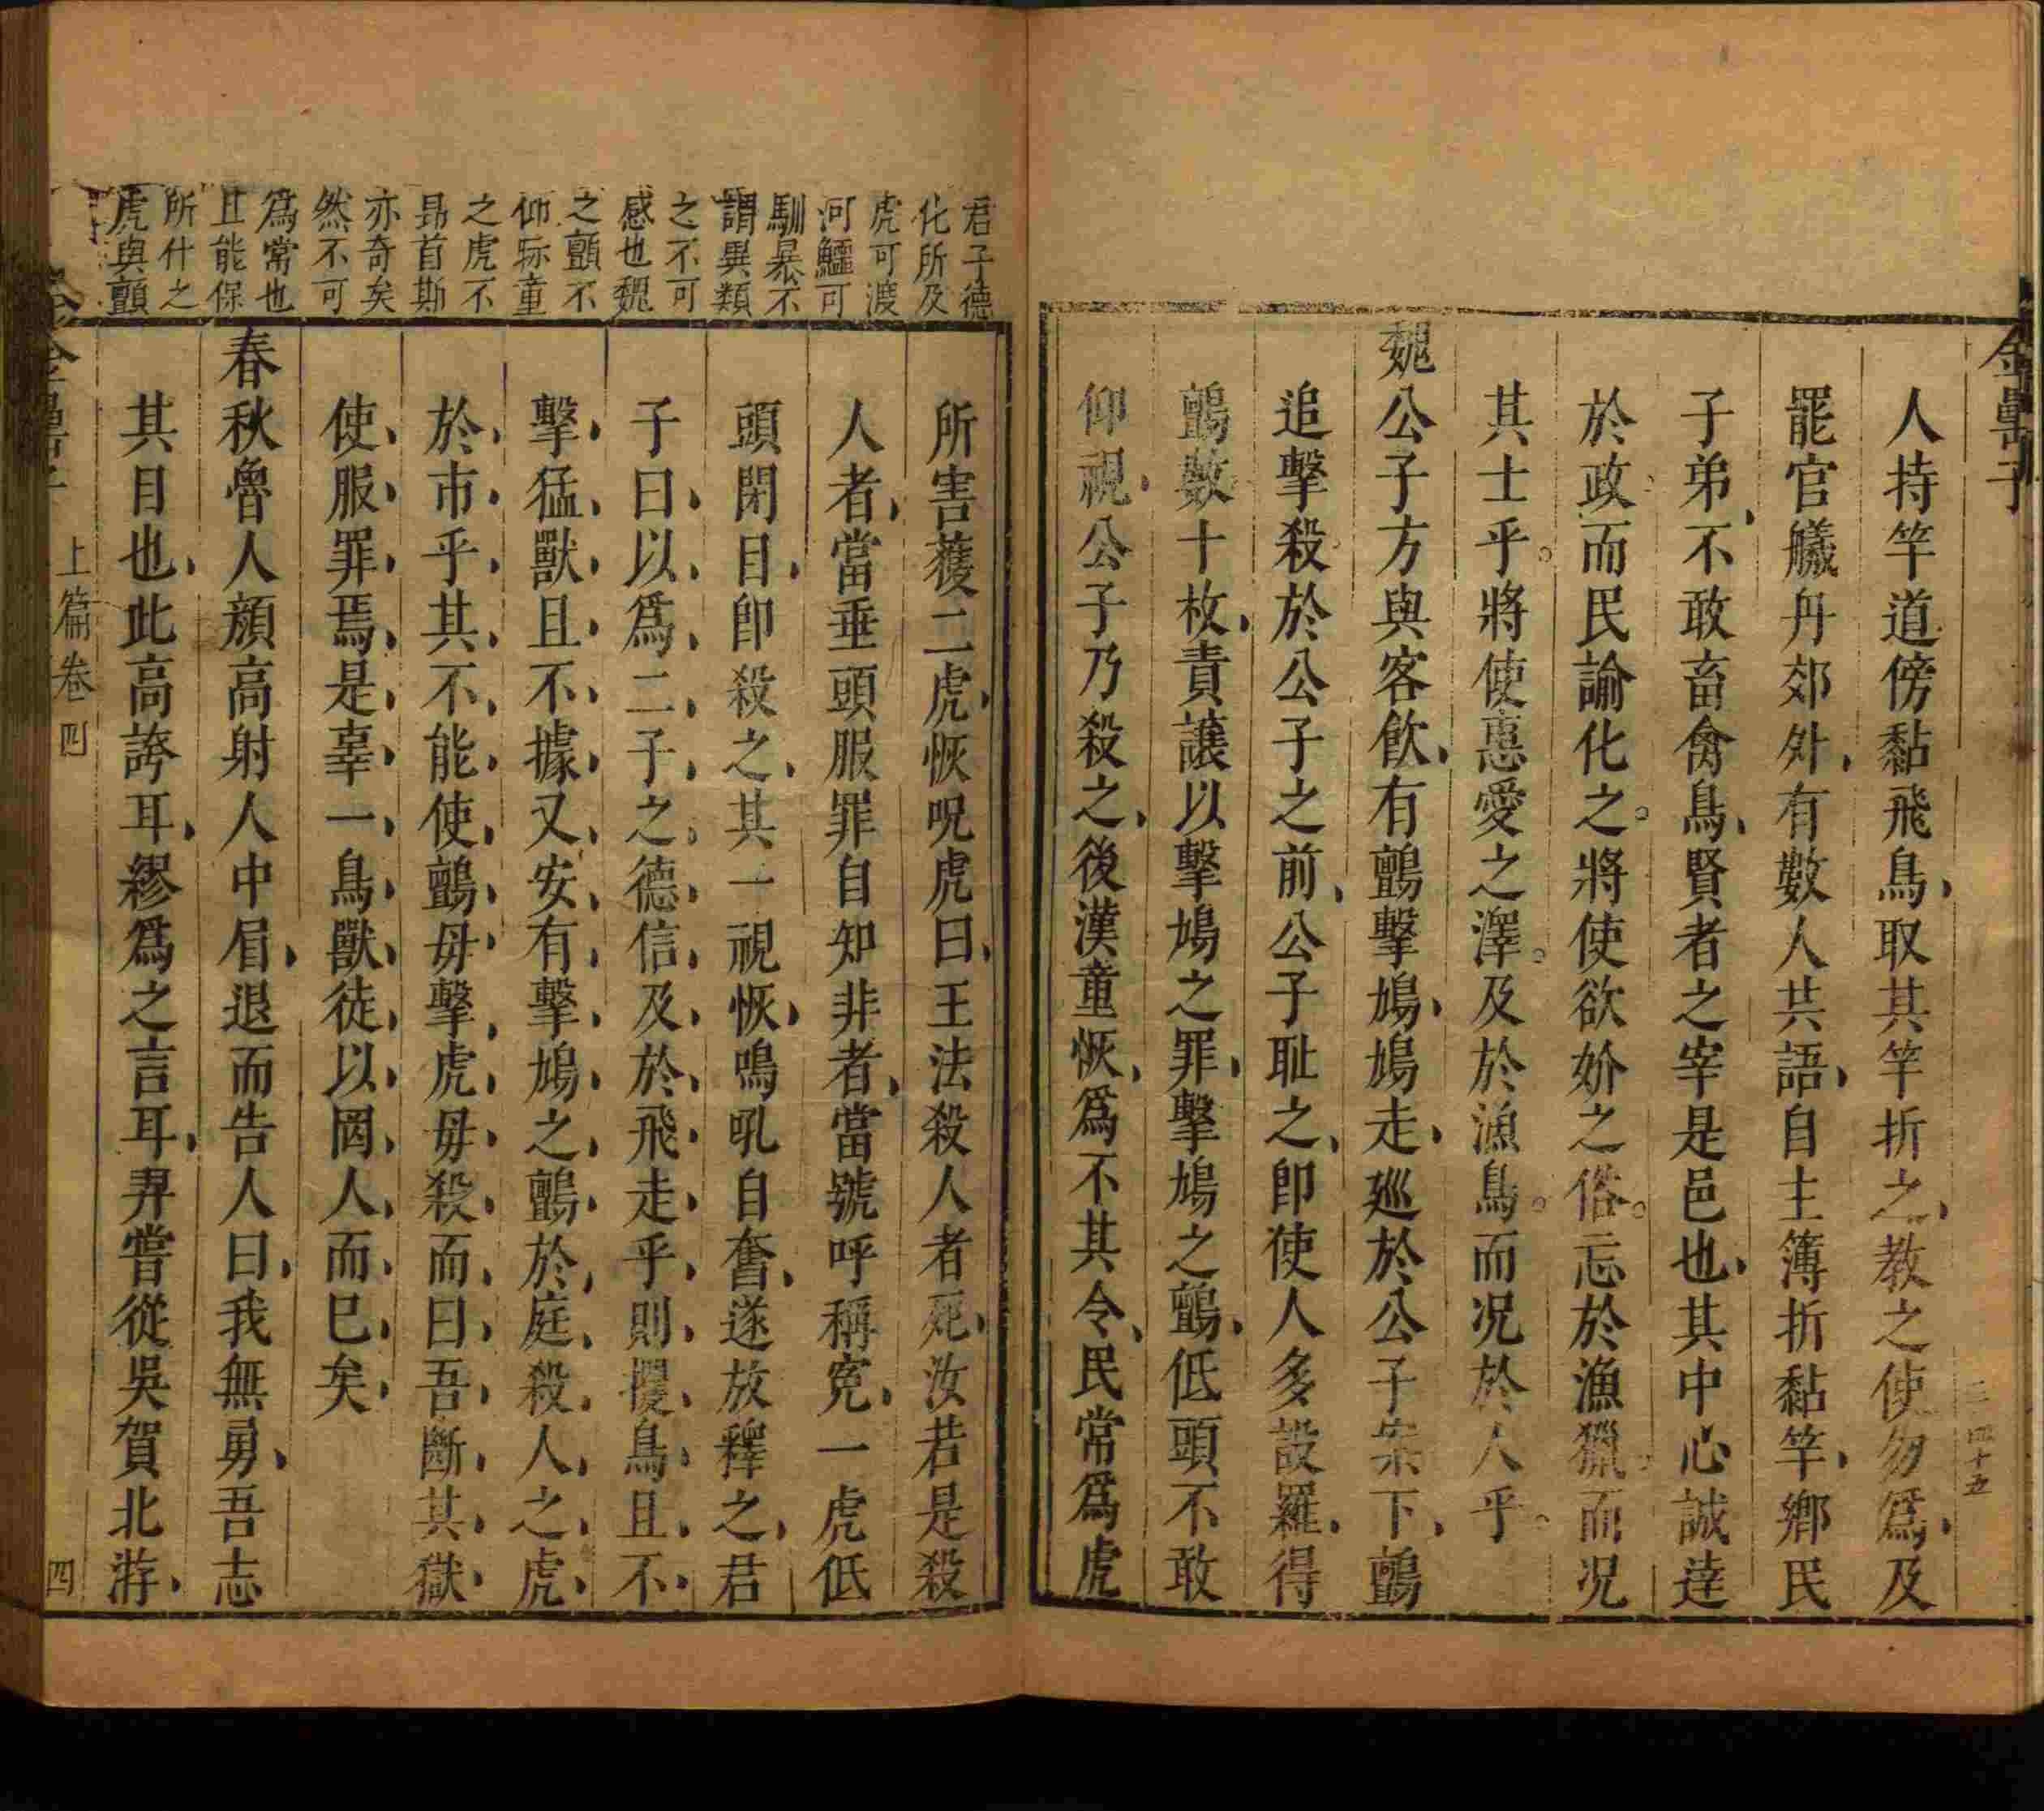 金罍子
人持竿道傍黏飛鳥取其竿折之教之使勿爲及
罷官艤丹郊外有數人共語自主簿折黏竿鄉民
子弟不敢畜禽鳥賢者之宰是邑也其中心誠達
於政而民諭化之將使欲妎之俗忘於漁獵而况
其士乎將使惠愛之澤及於漁鳥而况於人乎
魏公子方與客飲有鸇擊鳩鳩走廵於公子案下鸇
追擊殺於公子之前公子耻之卽使人多設羅得
鸇數十枚責讓以擊鳩之罪擊鳩之鸇低頭不敢
仰視公子乃殺之後漢童恢爲不其令民常爲虎
君子德
化所及
虎可渡
河鱷可
馴暴不
謂異類
之不可
感也魏
之鸇不
仰視童
之虎不
昻首斯
亦奇矣
然不可
爲常也
且能保
所什之
虎與鸇
所害獲二虎恢呪虎曰王法殺人者死汝若是殺
人者當垂頭服罪自知非者當號呼稱寃一虎低
頭閉目卽殺之其一視恢鳴吼自奮遂放釋之君
子曰以爲二子之德信及於飛走乎則攫鳥且不
擊猛獸且不據又安有擊鳩之鸇於庭殺人之虎
於市乎其不能使鸇毋擊虎毋殺而曰吾斷其獄
使服罪焉是辜一鳥獸徒以罔人而已矣
春秋魯人顏高射人中眉退而告人曰我無勇吾志
其目也此高誇耳繆爲之言耳羿嘗從吳賀北游
上篇卷四
四